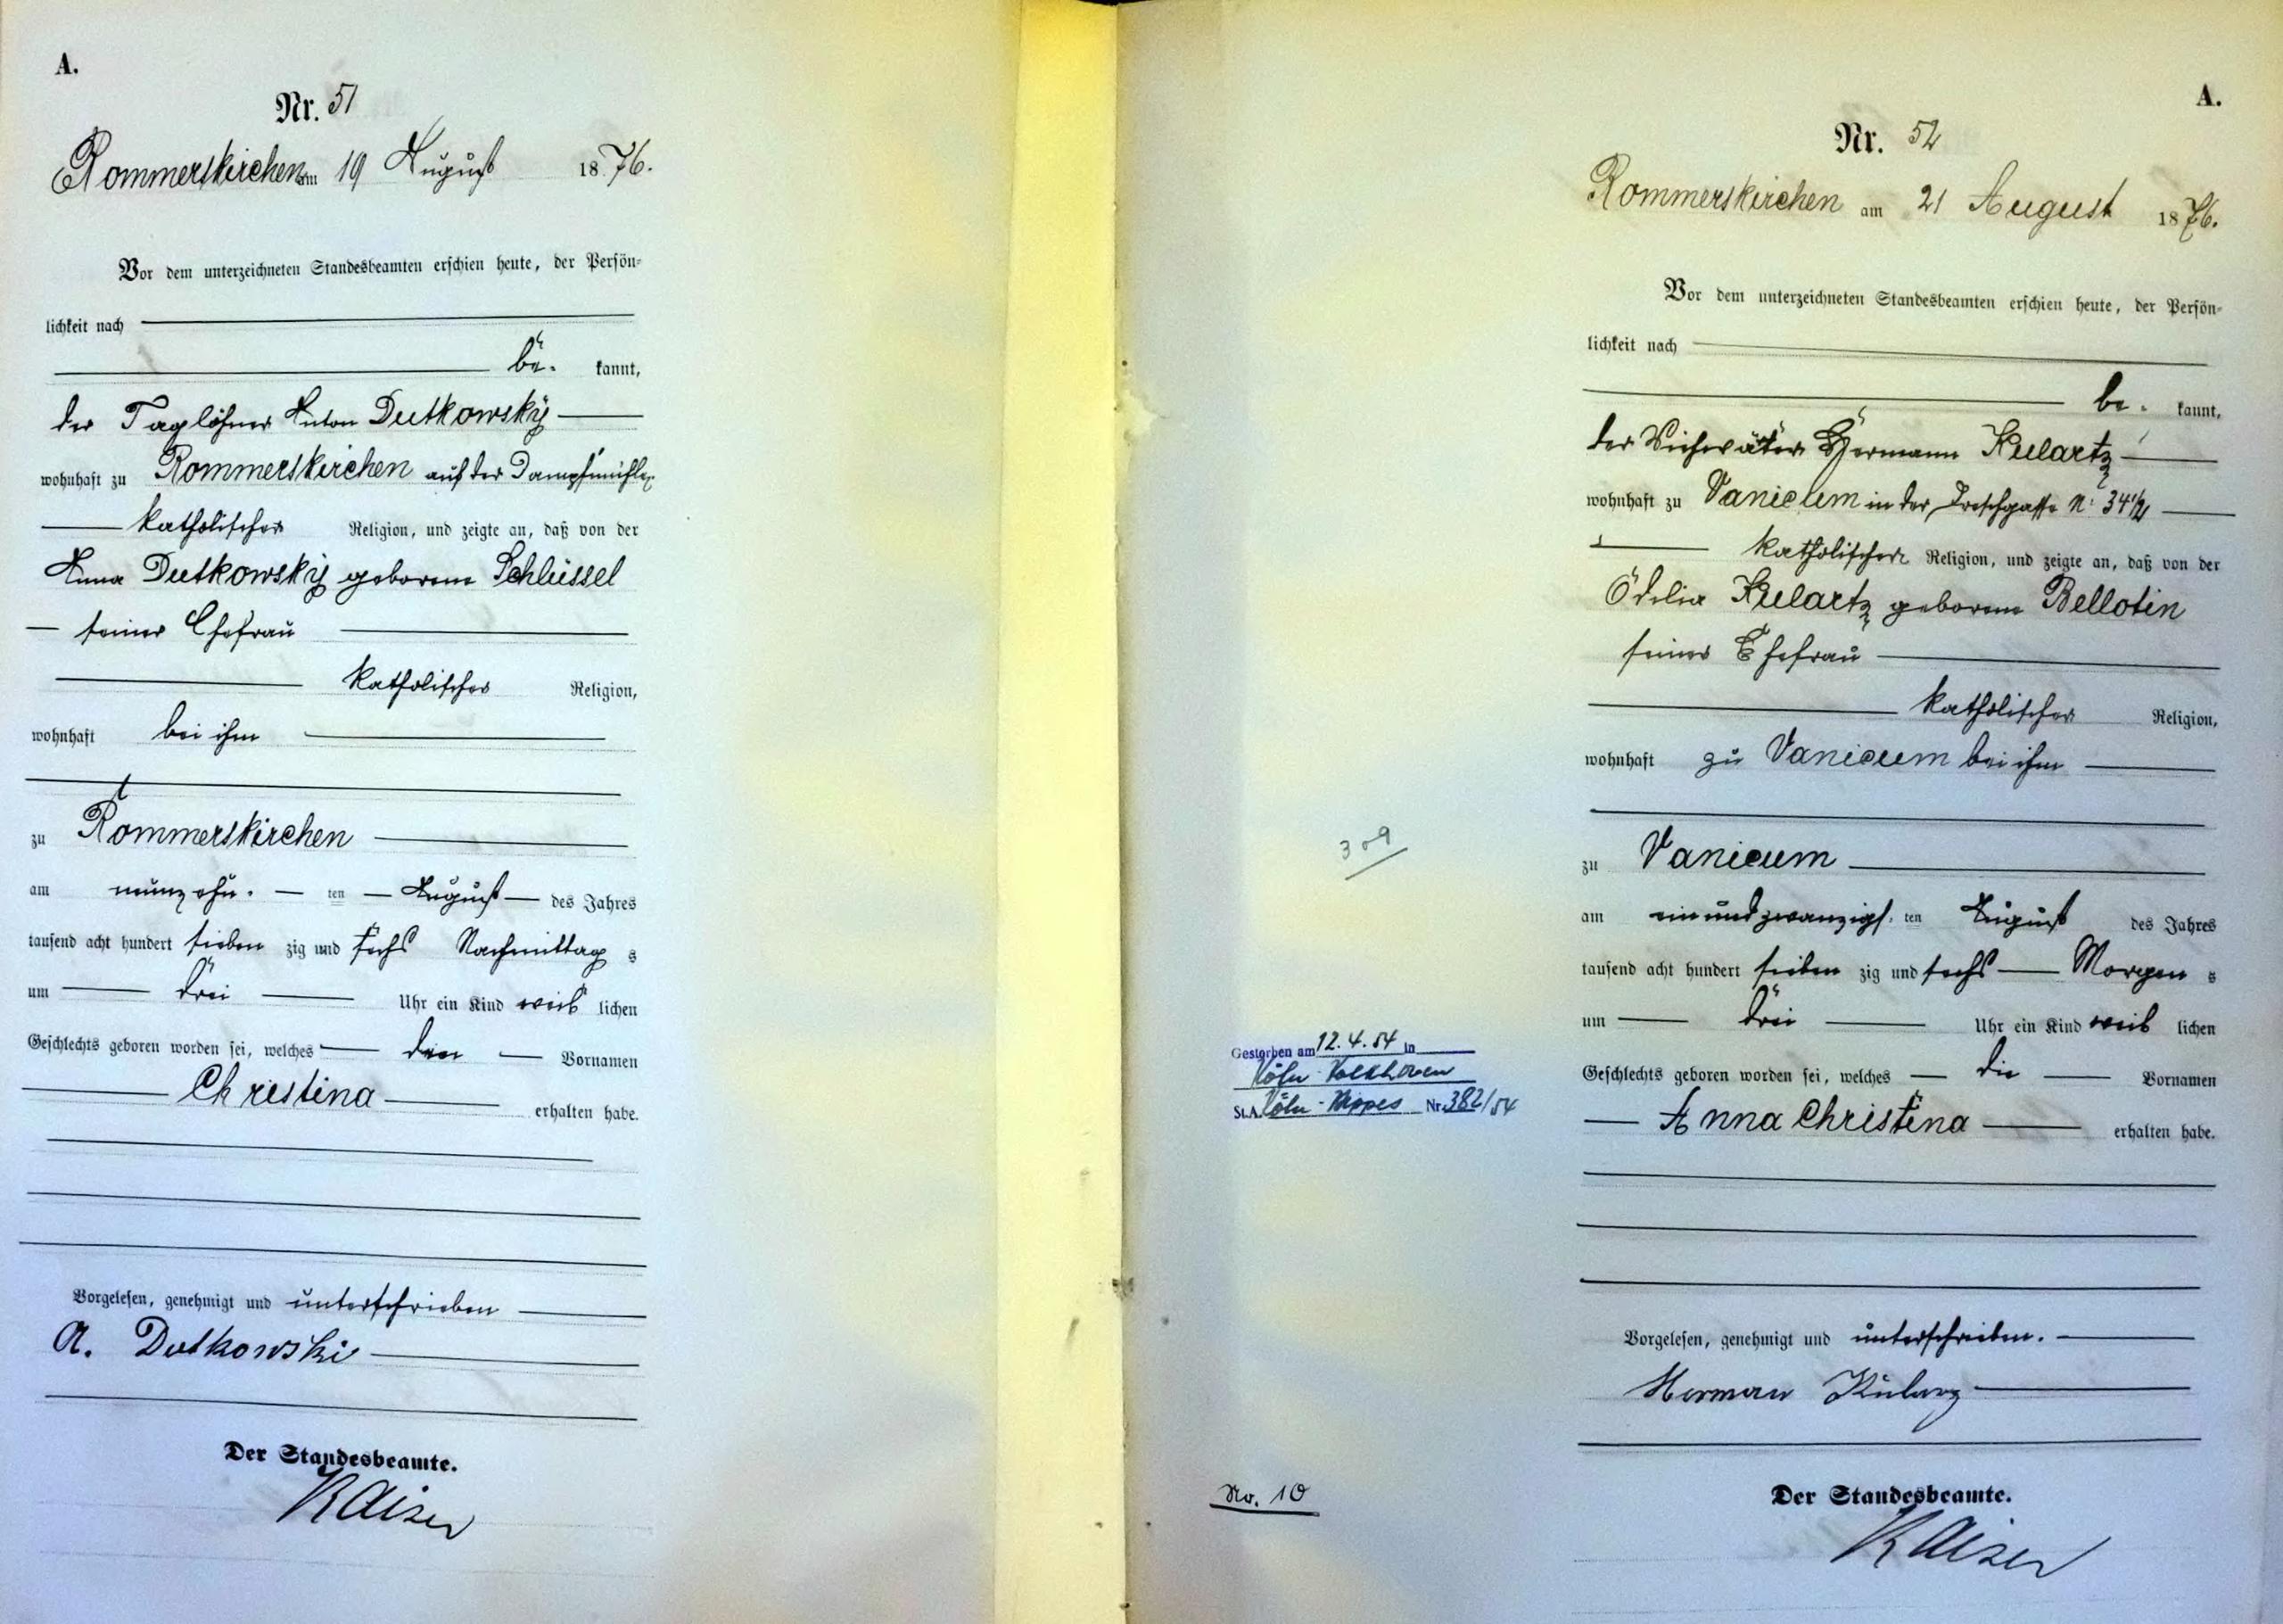 A.
Nr. 51
Rommerskirchen am 19 August 1876.
Vor dem unterzeichneten Standesbeamten erschien heute, der Persön-
lichkeit nach
be. kannt,
der Taglöhner Anton Dutkowsky
wohnhaft zu Rommerskirchen auf der Dampfmühle,
katholischer Religion, und zeigte an, daß von der
Anna Dutkowsky geborene Schlüssel
seiner Ehefrau
katholischer Religion,
wohnhaft bei ihm
zu Rommerskirchen
am neunzehn. ten August des Jahres
tausend acht hundert sieben zig und sechs Nachmittag s
um drei Uhr ein Kind weib lichen
Geschlechts geboren worden sei, welches den Vornamen
Christina
erhalten habe.
Vorgelesen, genehmigt und unterschrieben
A. Dutkowski
Der Standesbeamte.
Kaiser
309
Gestorben am 12.4.54 in
Köln-Volkhoven
St.A. Köln-Nippes Nr. 382/54
No. 10
A.
Nr. 52
Rommerskirchen am 21 August 1876.
Vor dem unterzeichneten Standesbeamten erschien heute, der Persön-
lichkeit nach
be. kannt,
der Hermann Kulartz
wohnhaft zu Vanicum in der N: 34½
katholischer Religion, und zeigte an, daß von der
Odilia Kulartz geborene Bellotin
seiner Ehefrau
katholischer Religion,
wohnhaft zu Vanicum bei ihm
zu Vanicum
am einundzwanzigs. ten August des Jahres
tausend acht hundert sieben zig und sechs Morgen s
um drei Uhr ein Kind weib lichen
Geschlechts geboren worden sei, welches die Vornamen
Anna Christina erhalten habe.
Vorgelesen, genehmigt und unterschrieben.
Herman Kularz
Der Standesbeamte.
Kaiser